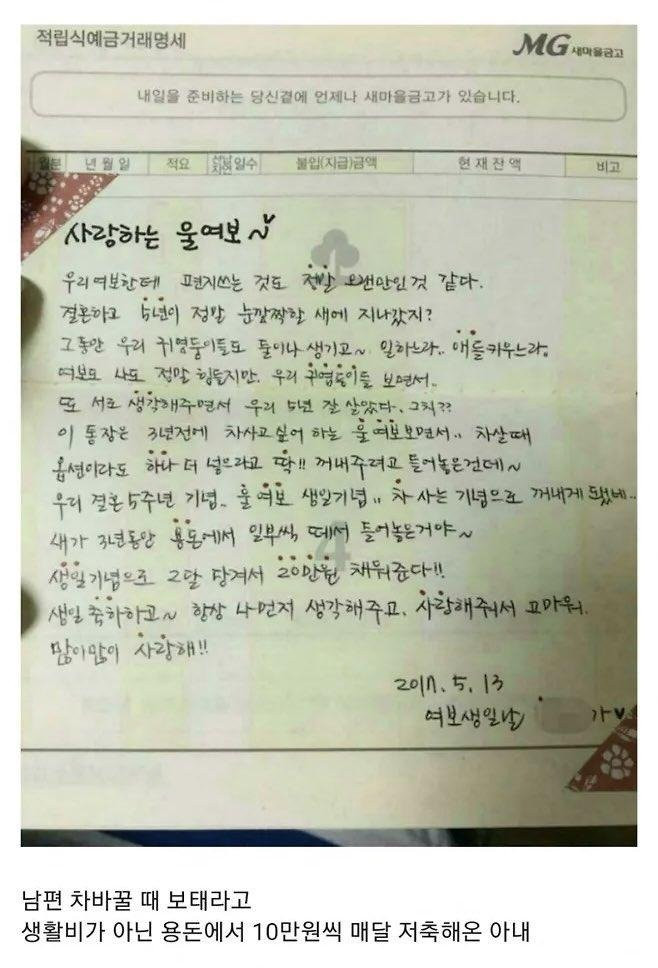 적립식예금거래명세
MG 새마을금고
내일을 준비하는 당신곁에 언제나 새마을금고가 있습니다.
월분 년월일 적요 선납 지연 일수 불입(지급)금액 현재잔액 비고
사랑하는 울여보~♥
우리여보한테 편지쓰는 것도 정말 오랜만인것 같다.
결혼하고 5년이 정말 눈깜짝할 새에 지나갔지?
그동안 우리 귀염둥이들도 둘이나 생기고~ 일하느라.. 애들키우느라,
여보도 나도 정말 힘들지만, 우리 귀염둥이들 보면서..
또 서로 생각해주면서 우리 5년 잘 살았다. 그치??
이 통장은 3년전에 차사고싶어 하는 울여보보면서.. 차살때
옵션이라도 하나 더 넣으라고 딱!! 꺼내주려고 들어놓은건데~
우리 결혼5주년 기념.. 울여보 생일기념.. 차 사는 기념으로 꺼내게 됐네..
내가 3년동안 용돈에서 일부씩 떼서 들어놓은거야~
생일기념으로 2달 당겨서 20만원 채워준다!!
생일 축하하고~ 항상 나먼저 생각해주고, 사랑해줘서 고마워.
많이많이 사랑해!!
2017. 5. 13
여보생일날 가♥
남편 차바꿀 때 보태라고
생활비가 아닌 용돈에서 10만원씩 매달 저축해온 아내